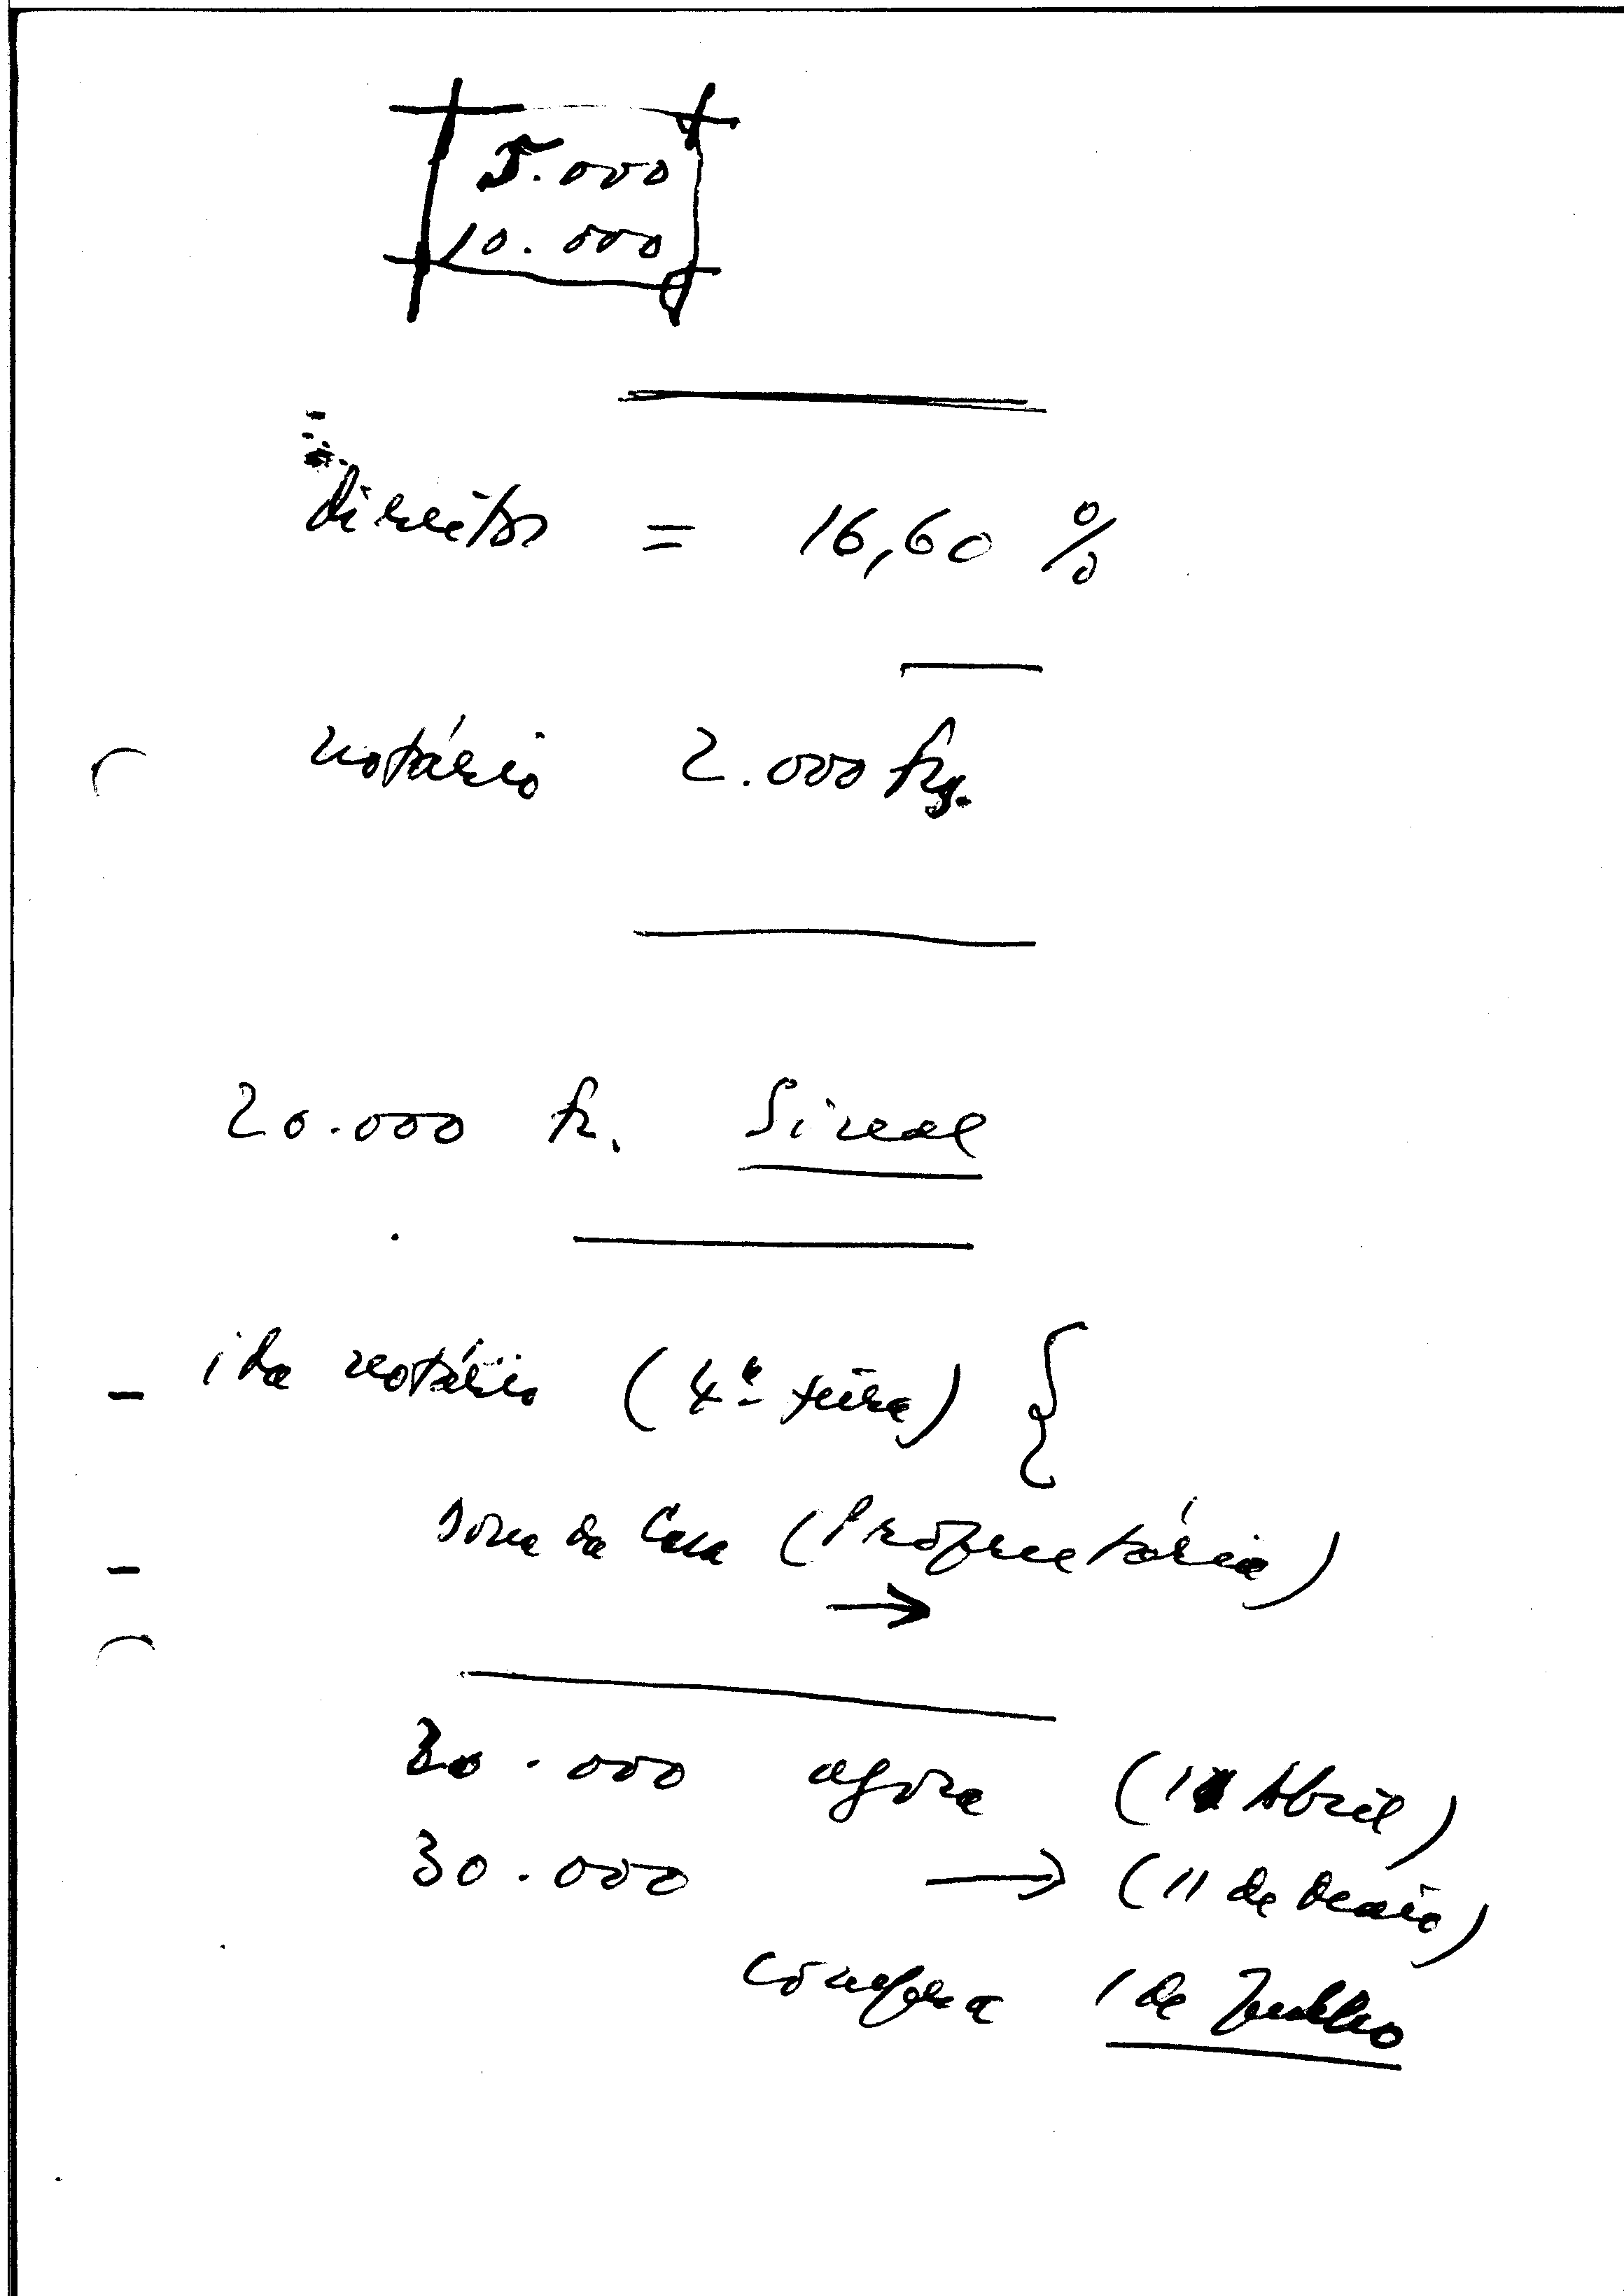 5.000
10.000
direitos = 16,60 %
notário 2.000 frs.
20.000 fr. Sinal
- ida notário (4ª feira) {
- Dona da Casa (Proprietária)
→
30.000 agora (11 Abril)
30.000 → (11 de Maio)
compra 1 de Julho